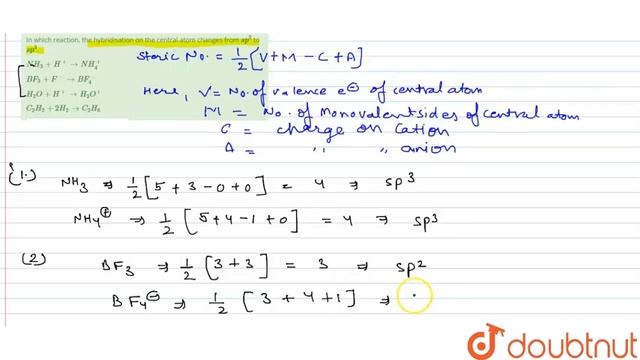 In which reaction, the hybridisation on the central atom changes from sp² to
sp³.
NH₃ + H⁺ → NH₄⁺
BF₃ + F⁻ → BF₄⁻
H₂O + H⁺ → H₃O⁺
C₂H₂ + 2H₂ → C₂H₆
Steric No. = 1/2 [V+M-C+A]
Here, V = No. of valence e⊖ of central atom
M = No. of Monovalent sides of central atom
C = charge on Cation
A = " " anion
(1.) NH₃ ⇒ 1/2 [5+3-0+0] = 4 ⇒ sp³
NH₄⊕ ⇒ 1/2 [5+4-1+0] = 4 ⇒ sp³
(2) BF₃ ⇒ 1/2 [3+3] = 3 ⇒ sp²
BF₄⊖ ⇒ 1/2 [3+4+1] ⇒
doubtnut